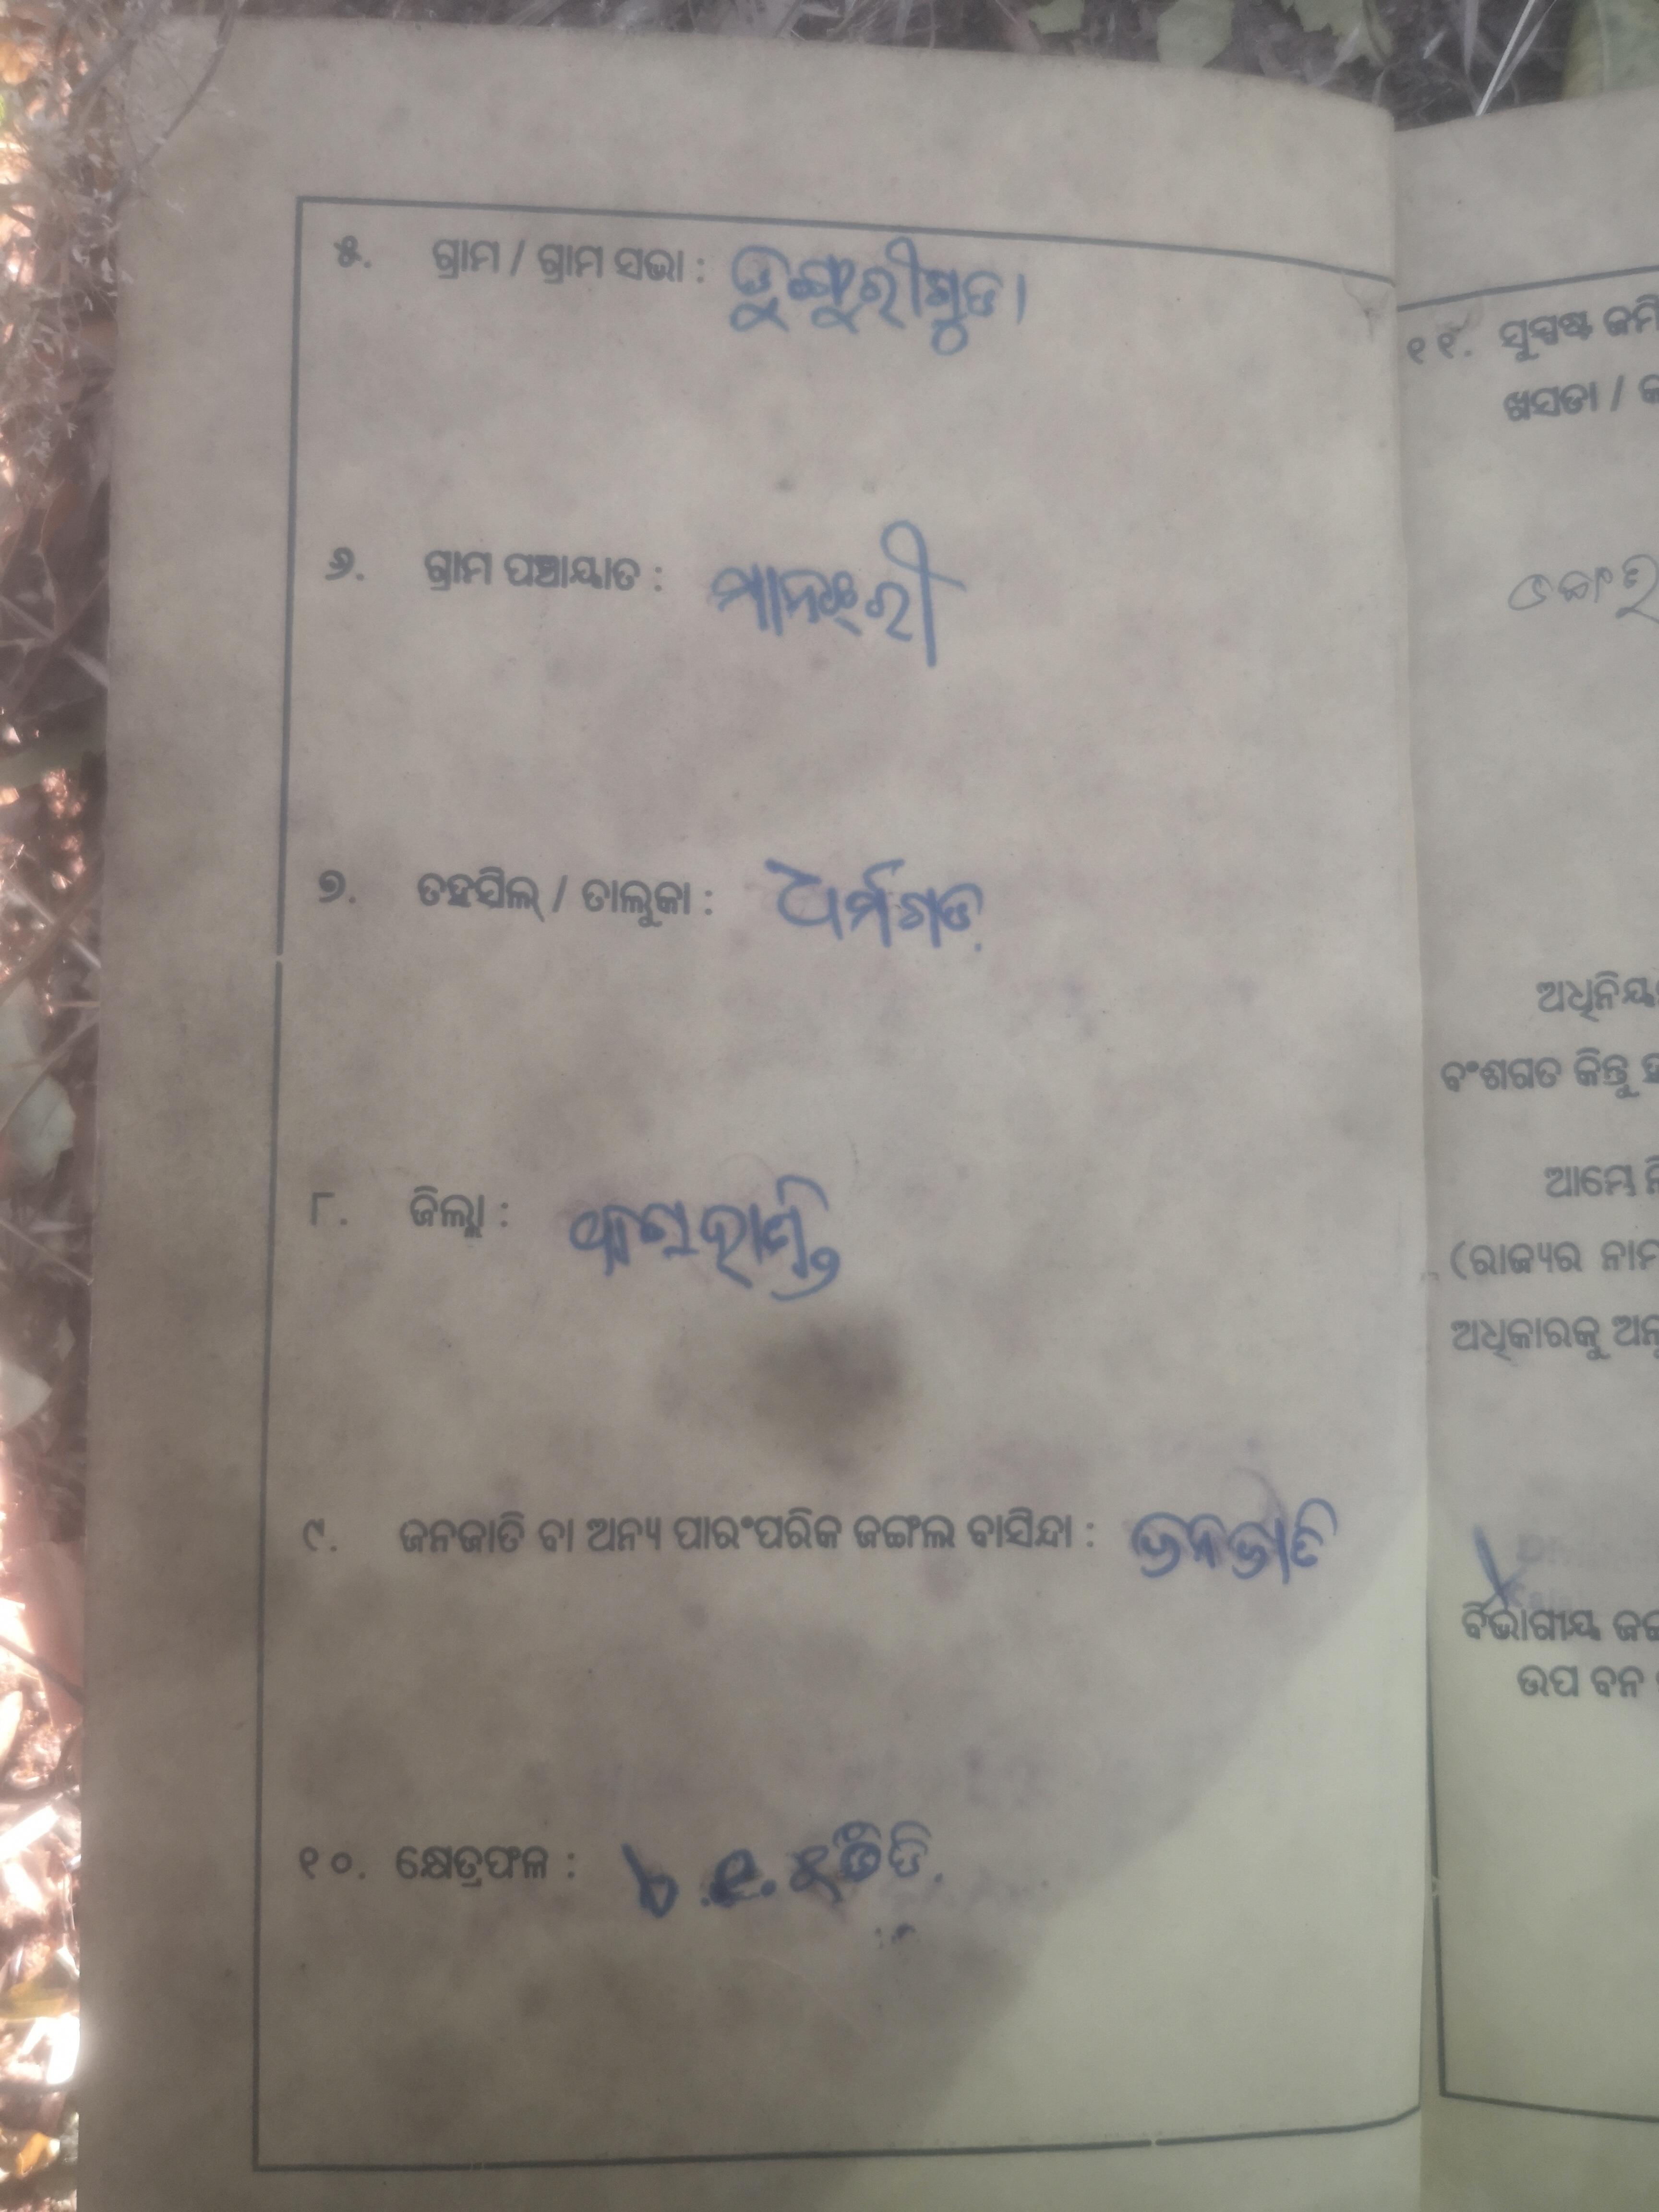 ୫. ଗ୍ରାମ / ଗ୍ରାମ ସଭା : ଡୁଙ୍ଗୁରୀଗୁଡା
୬. ଗ୍ରାମ ପଞ୍ଚାୟାତ :
୭. ତହସିଲ୍ / ତାଲୁକା : ଧର୍ମଗଡ
୮. ଜିଲ୍ଲା : କଳାହାଣ୍ଡି
୯. ଜନଜାତି ବା ଅନ୍ୟ ପାରଂପରିକ ଜଙ୍ଗଲ ବାସିନ୍ଦା : ଜନଜାତି
୧୦. କ୍ଷେତ୍ରଫଳ :
୧୧. ସୁସ୍ପଷ୍ଟ
ଖସଡା /
ବଂଶଗତ କିନ୍ତୁ
ଆମ୍ଭେ
(ରାଜ୍ୟର ନାମ
ଅଧିକାରକୁ
ବିଭାଗୀୟ
ଉପ ବନ